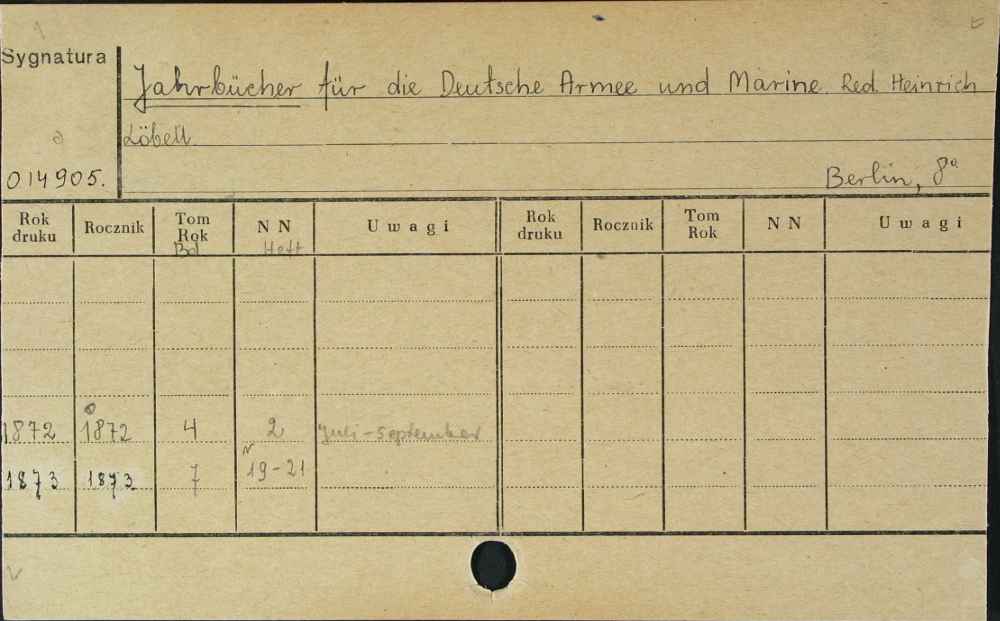 Sygnatura
Jahrbücher für die Deutsche Armee und Marine. Red. Heinrich
Löbell.
014905.
Berlin, 8°
Rok druku Rocznik Tom Rok N N Uwagi Rok druku Rocznik Tom Rok N N Uwagi
Bd. Heft
1872 1872 4 2 Juli-September
1873 1873 7 19-21